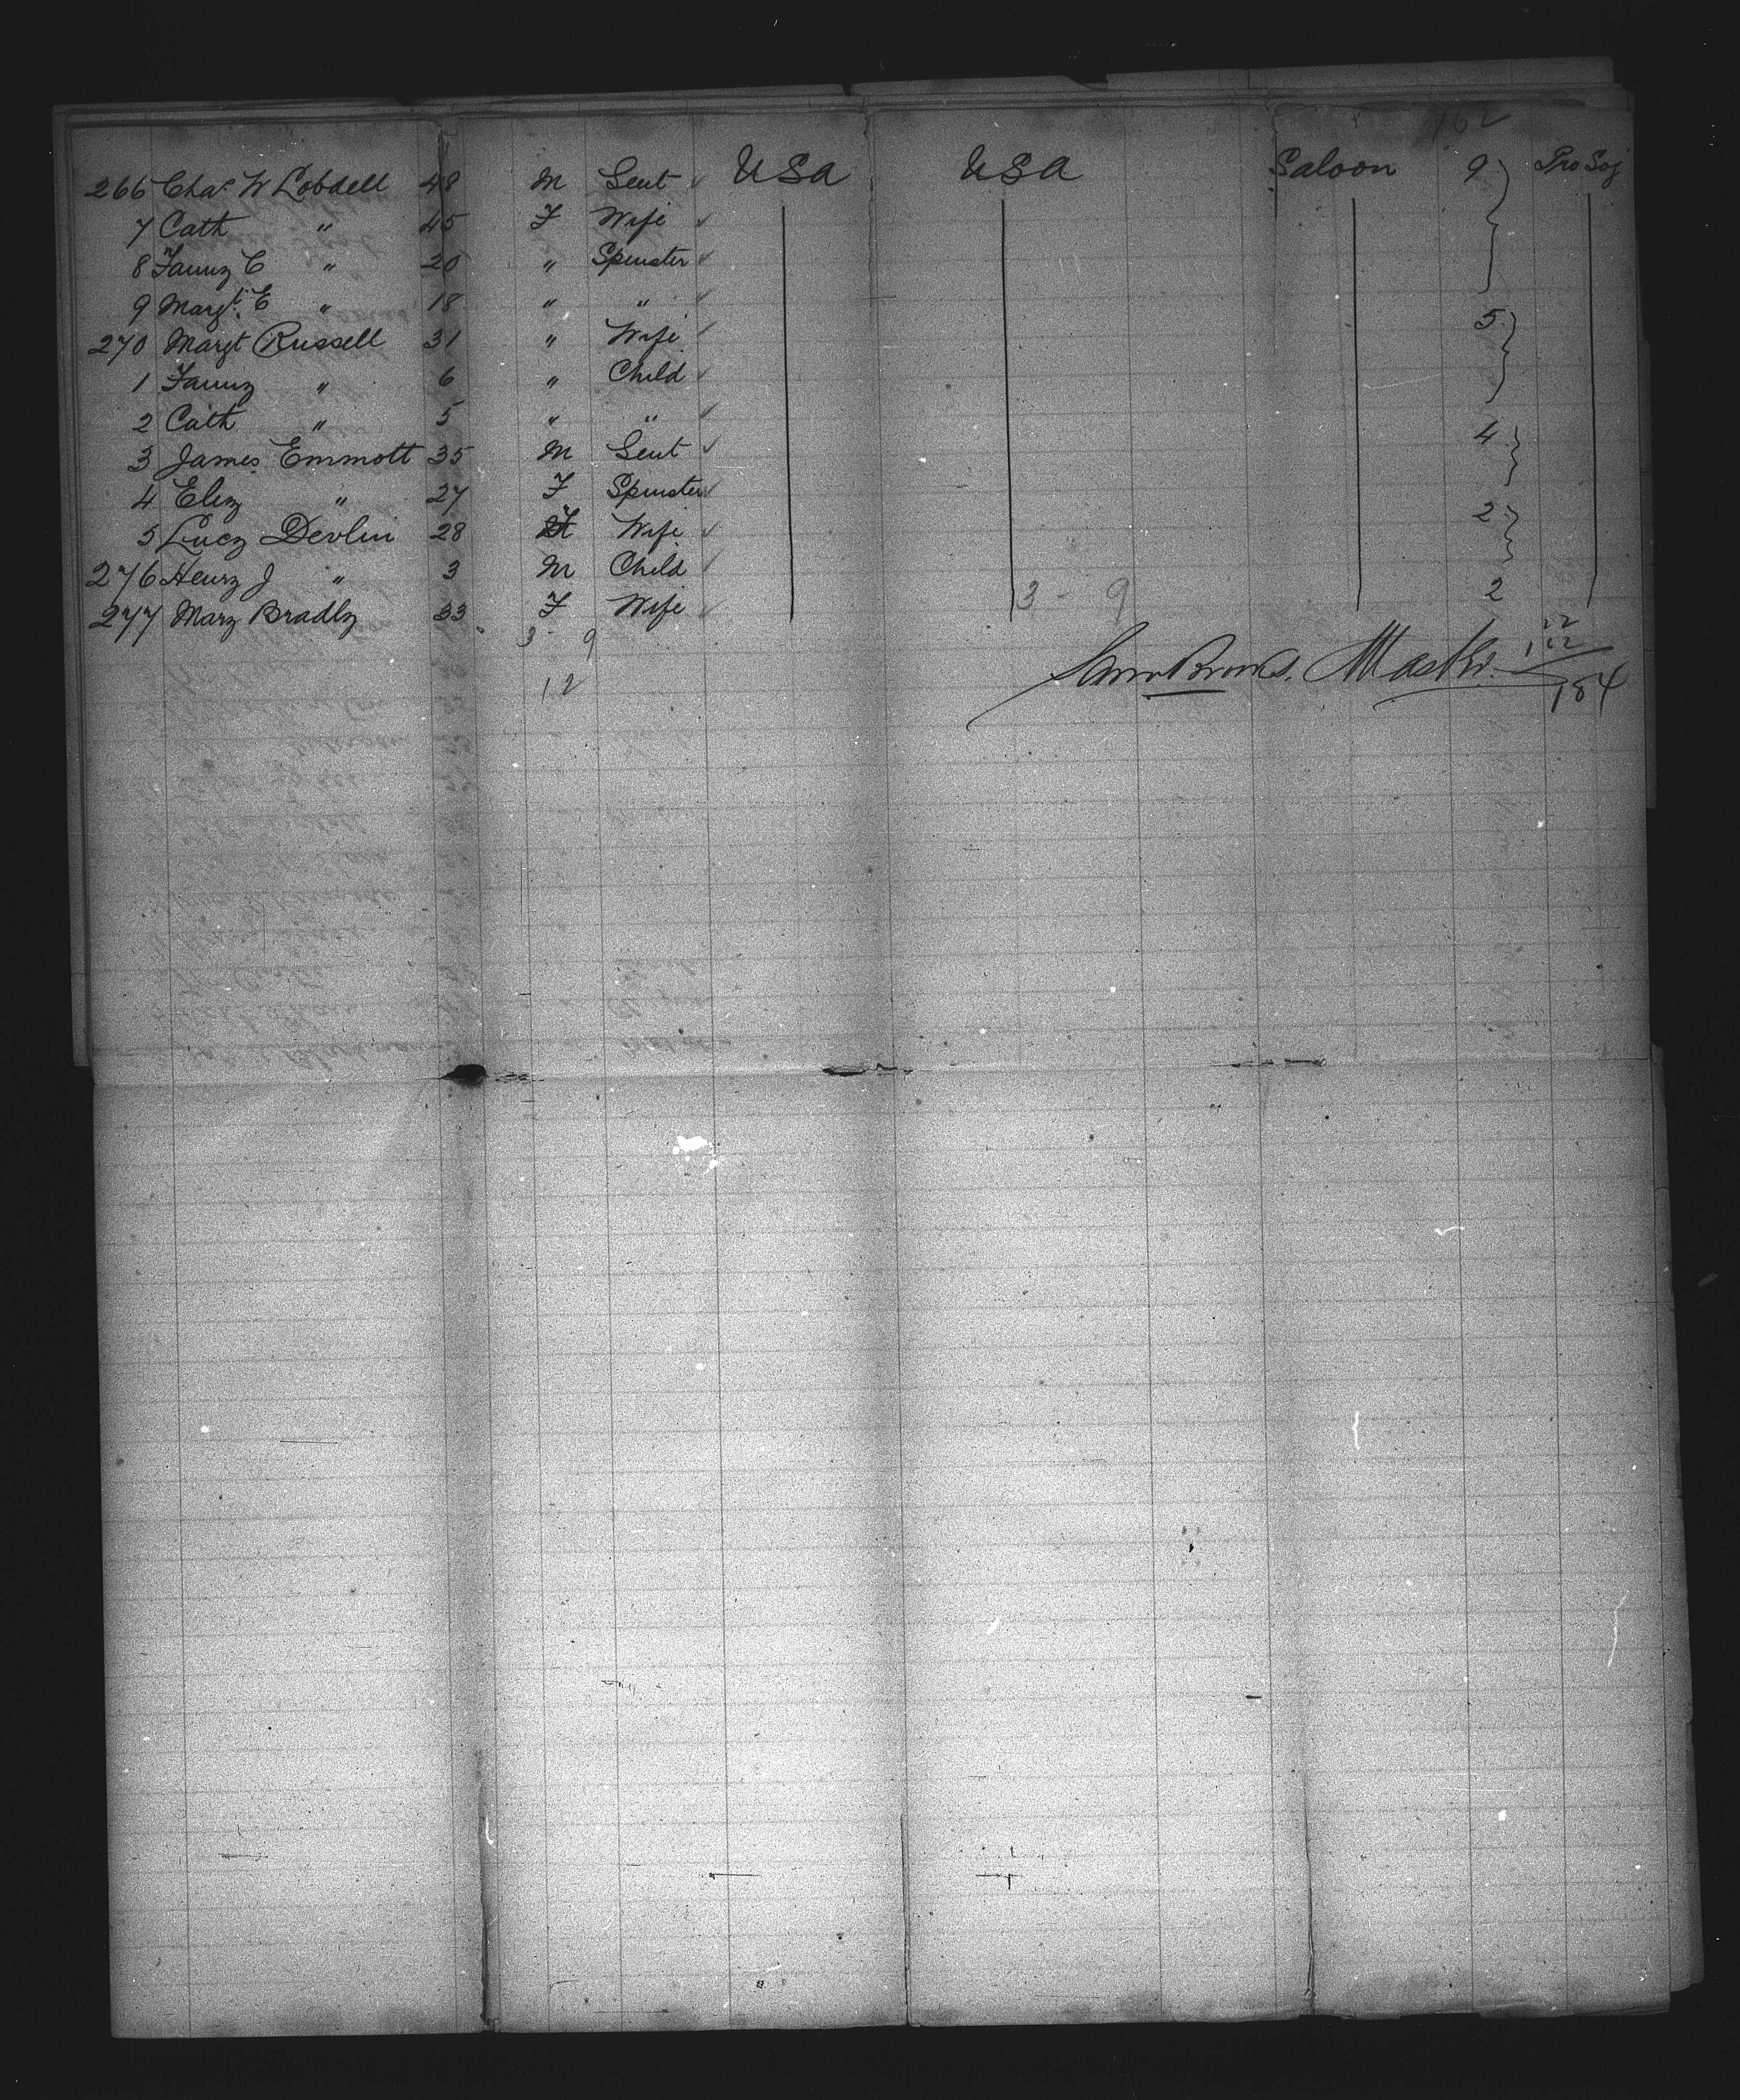 162
266 Chas W Lobdell 48 M Gent ✓ USA USA Saloon 9 } Pro Soj
7 Cath " 45 F Wife ✓
8 Fanny C " 20 " Spinster ✓
9 Margt. E " 18 " " ✓
270 Margt Russell 31 " Wife ✓ 5 }
1 Fanny " 6 " Child ✓
2 Cath " 5 " " ✓
3 James Emmott 35 M Gent ✓ 4 }
4 Eliz " 27 F Spinster ✓
5 Lucy Devlin 28 F Wife ✓ 2 }
276 Henry J " 3 M Child ✓
277 Mary Bradly 33 F Wife ✓ 3 - 9 2
3 - 9 22
12 Saml Brooks. Master. 162
184